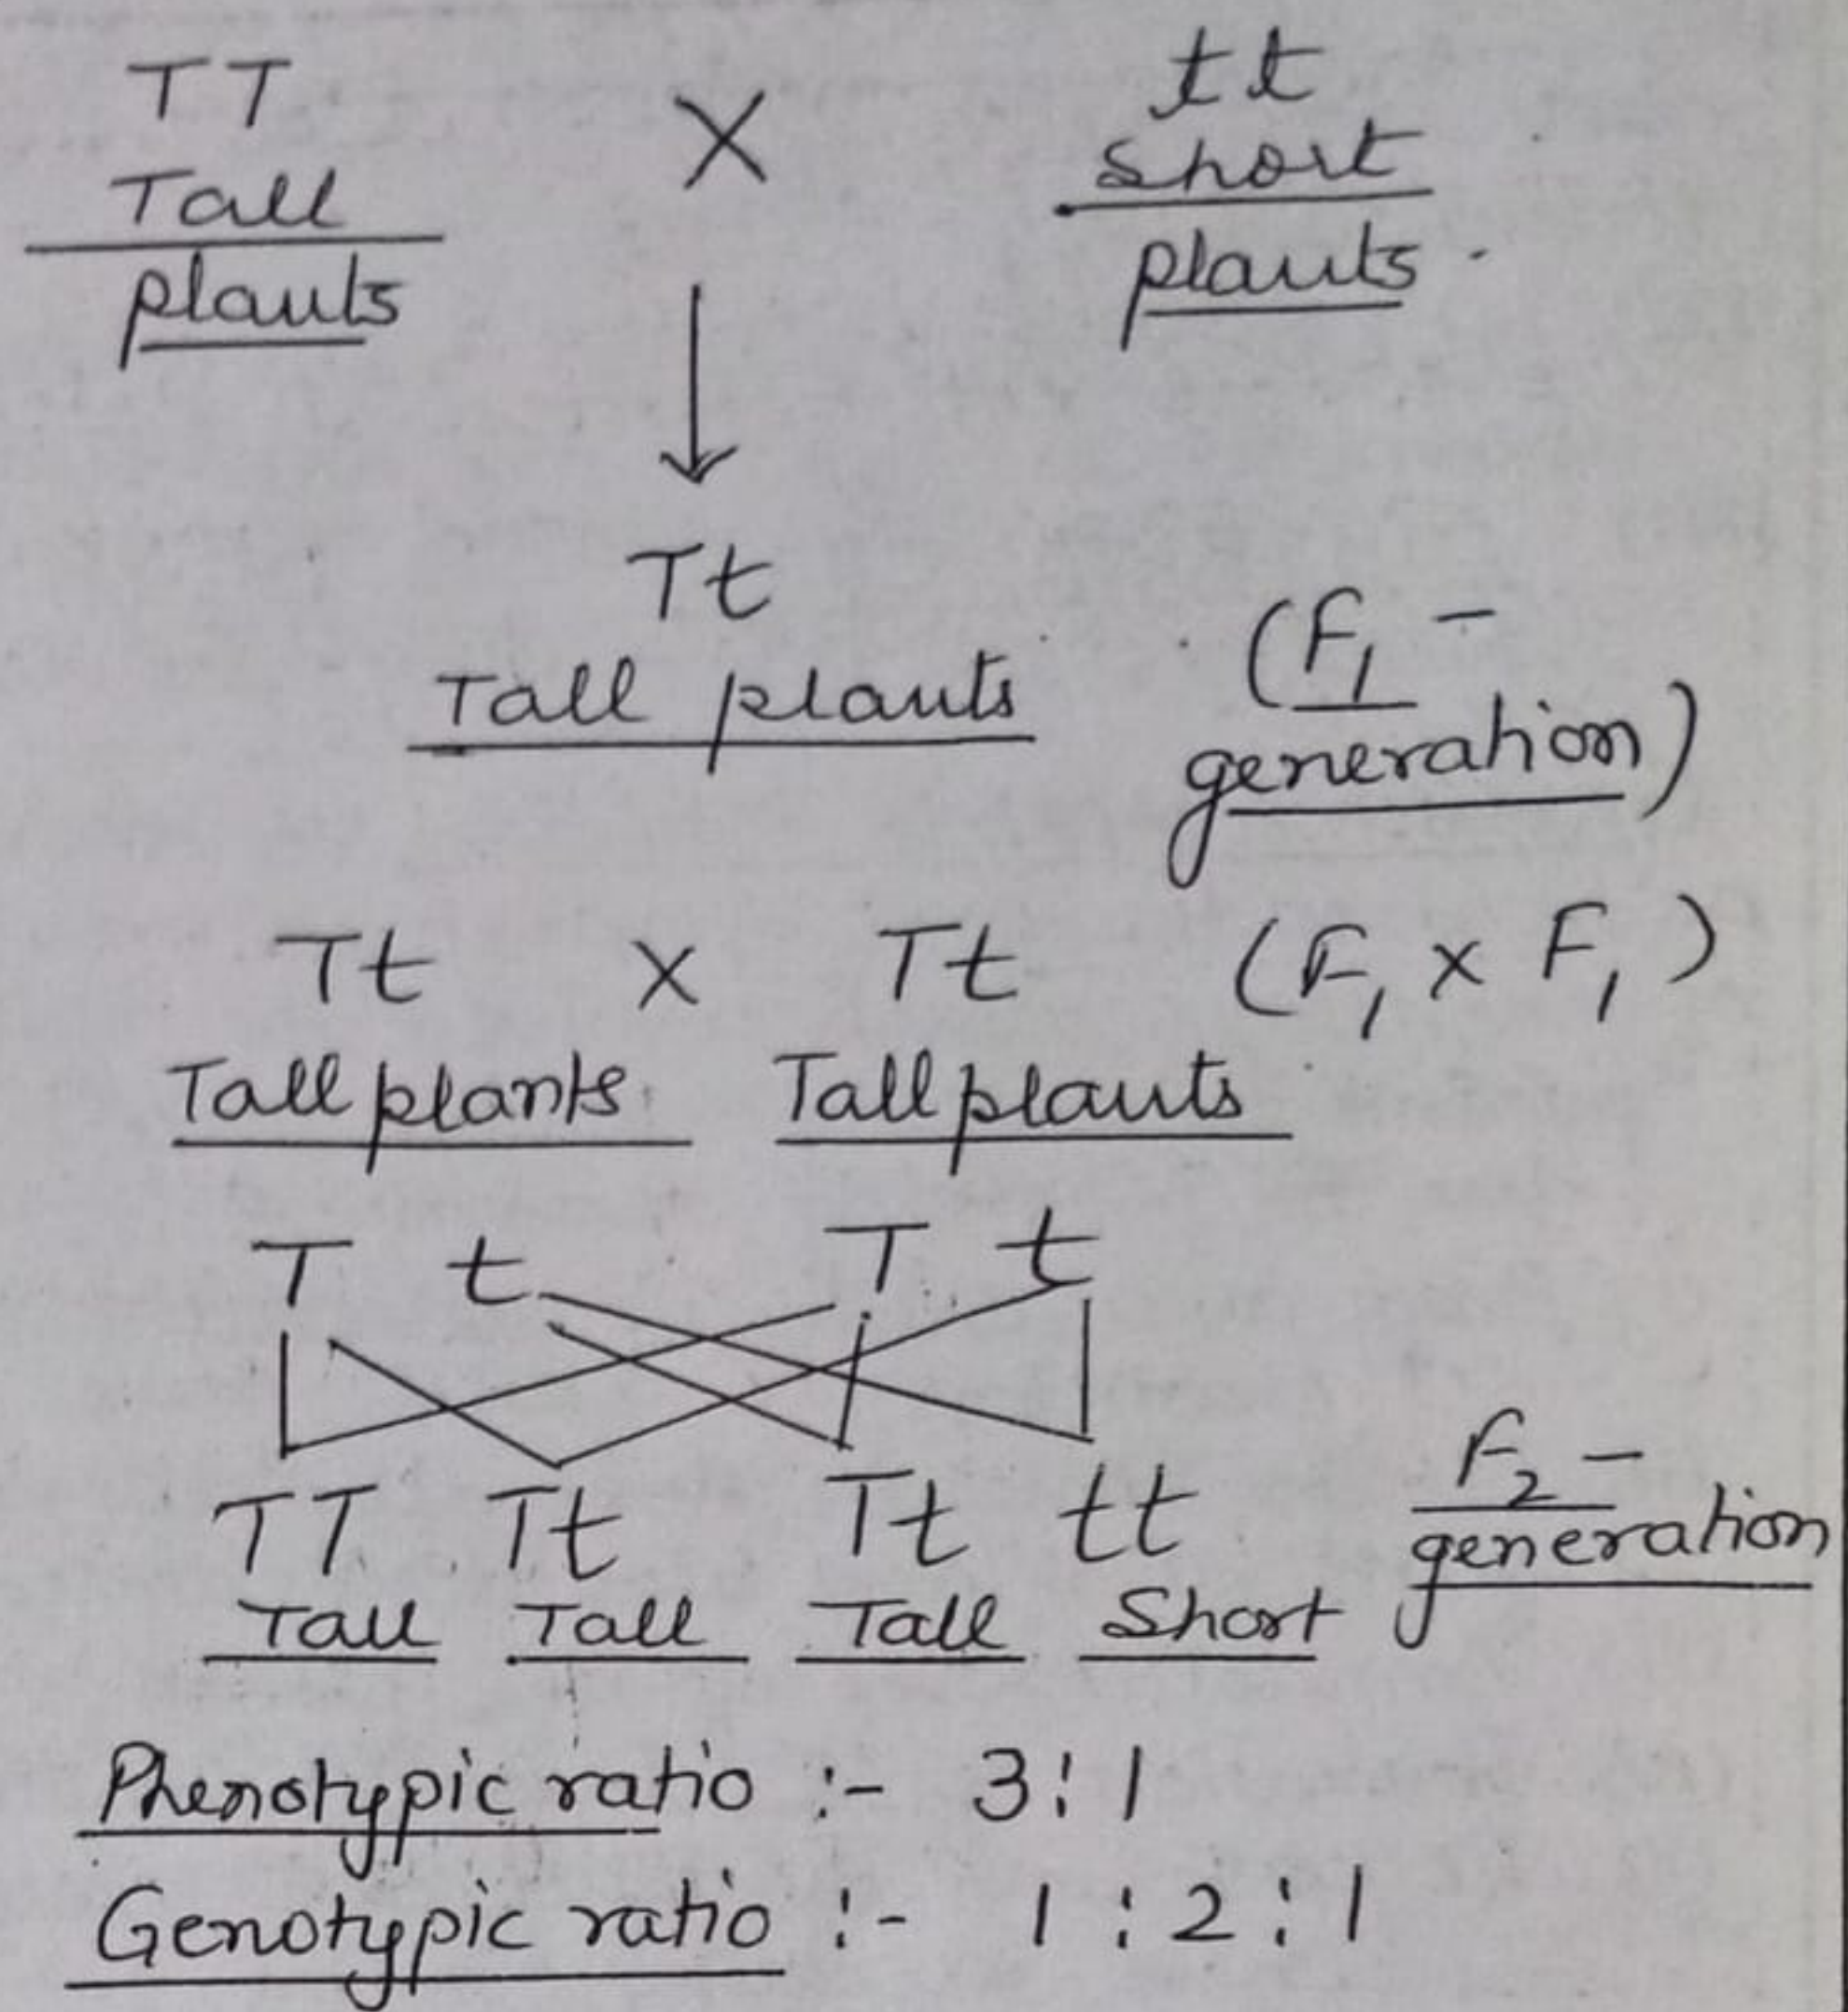 TT X tt
Tall short
plants plants
Tt
Tall plants (F₁ -
generation)
Tt x Tt (F₁ x F₁)
Tall plants Tall plants
T t T t
TT Tt Tt tt F₂ -
generation
Tall Tall Tall Short
Phenotypic ratio :- 3:1
Genotypic ratio :- 1:2:1